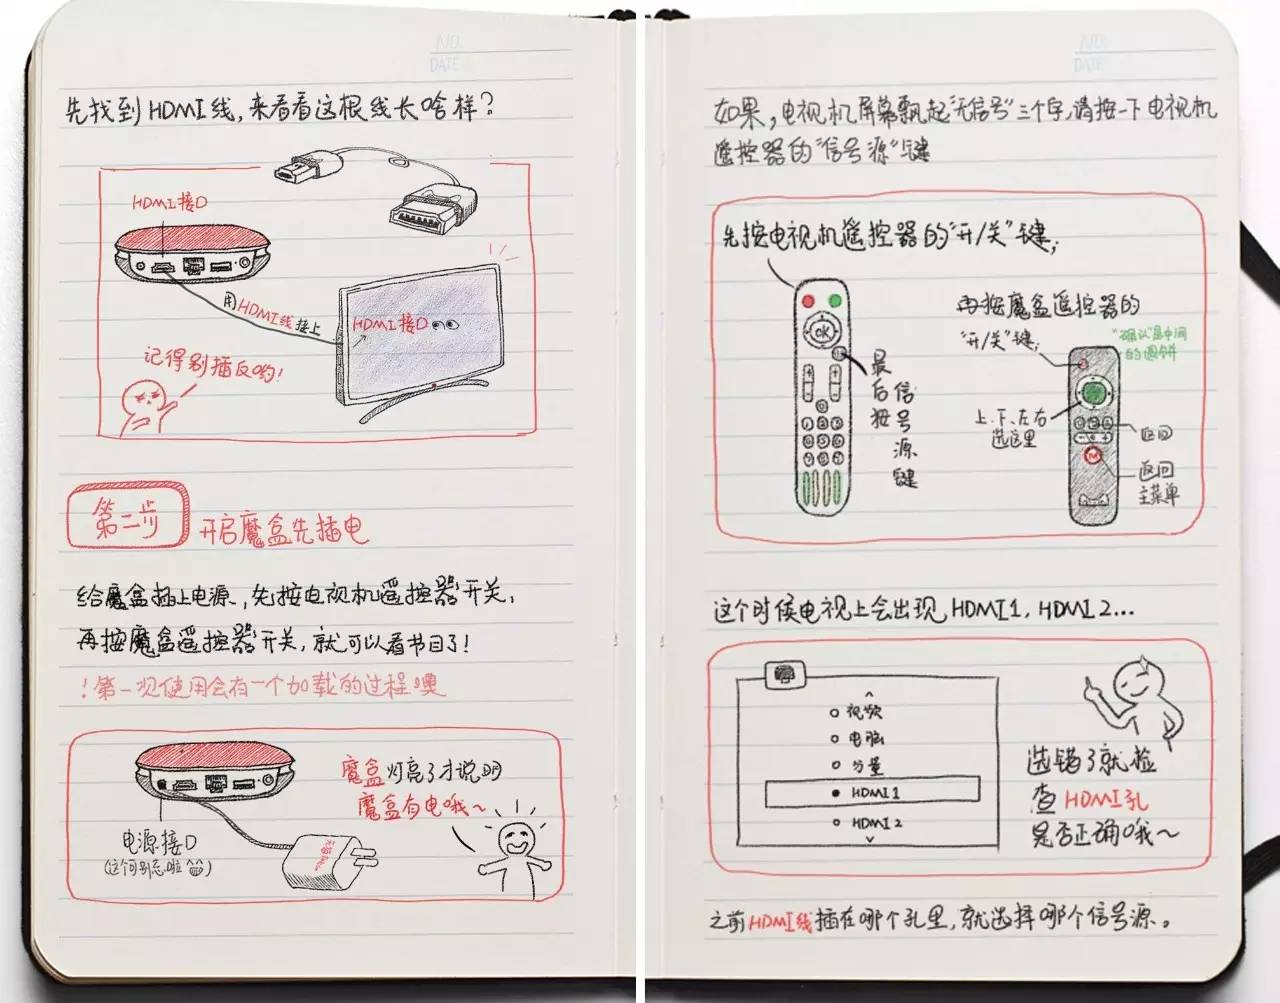 NO.
DATE
先找到HDMI线,来看看这根线长啥样?
HDMI接口
用HDMI线接上
HDMI接口
记得别插反哟!
第二步
开启魔盒先插电
给魔盒插上电源,先按电视机遥控器开关,
再按魔盒遥控器开关,就可以看节目了!
!第一次使用会有一个加载的过程噢
魔盒灯亮了才说明
魔盒有电哦~
电源接口
(这个可别忘啦
NO.
DATE
如果,电视机屏幕飘起"无信号"三个字,请按一下电视机
遥控器的"信号源"键
先按电视机遥控器的"开/关"键;
OK
最后按
信号源键
再按魔盒遥控器的
"开/关"键;
"确认"是中间
的圆饼
上、下、左右
选这里
返回
返回
主菜单
这个时候电视上会出现,HDMI1,HDMI2...
视频
电脑
分量
HDMI1
HDMI2
选错了就检
查HDMI孔
是否正确哦~
之前HDMI线插在哪个孔里,就选择哪个信号源。